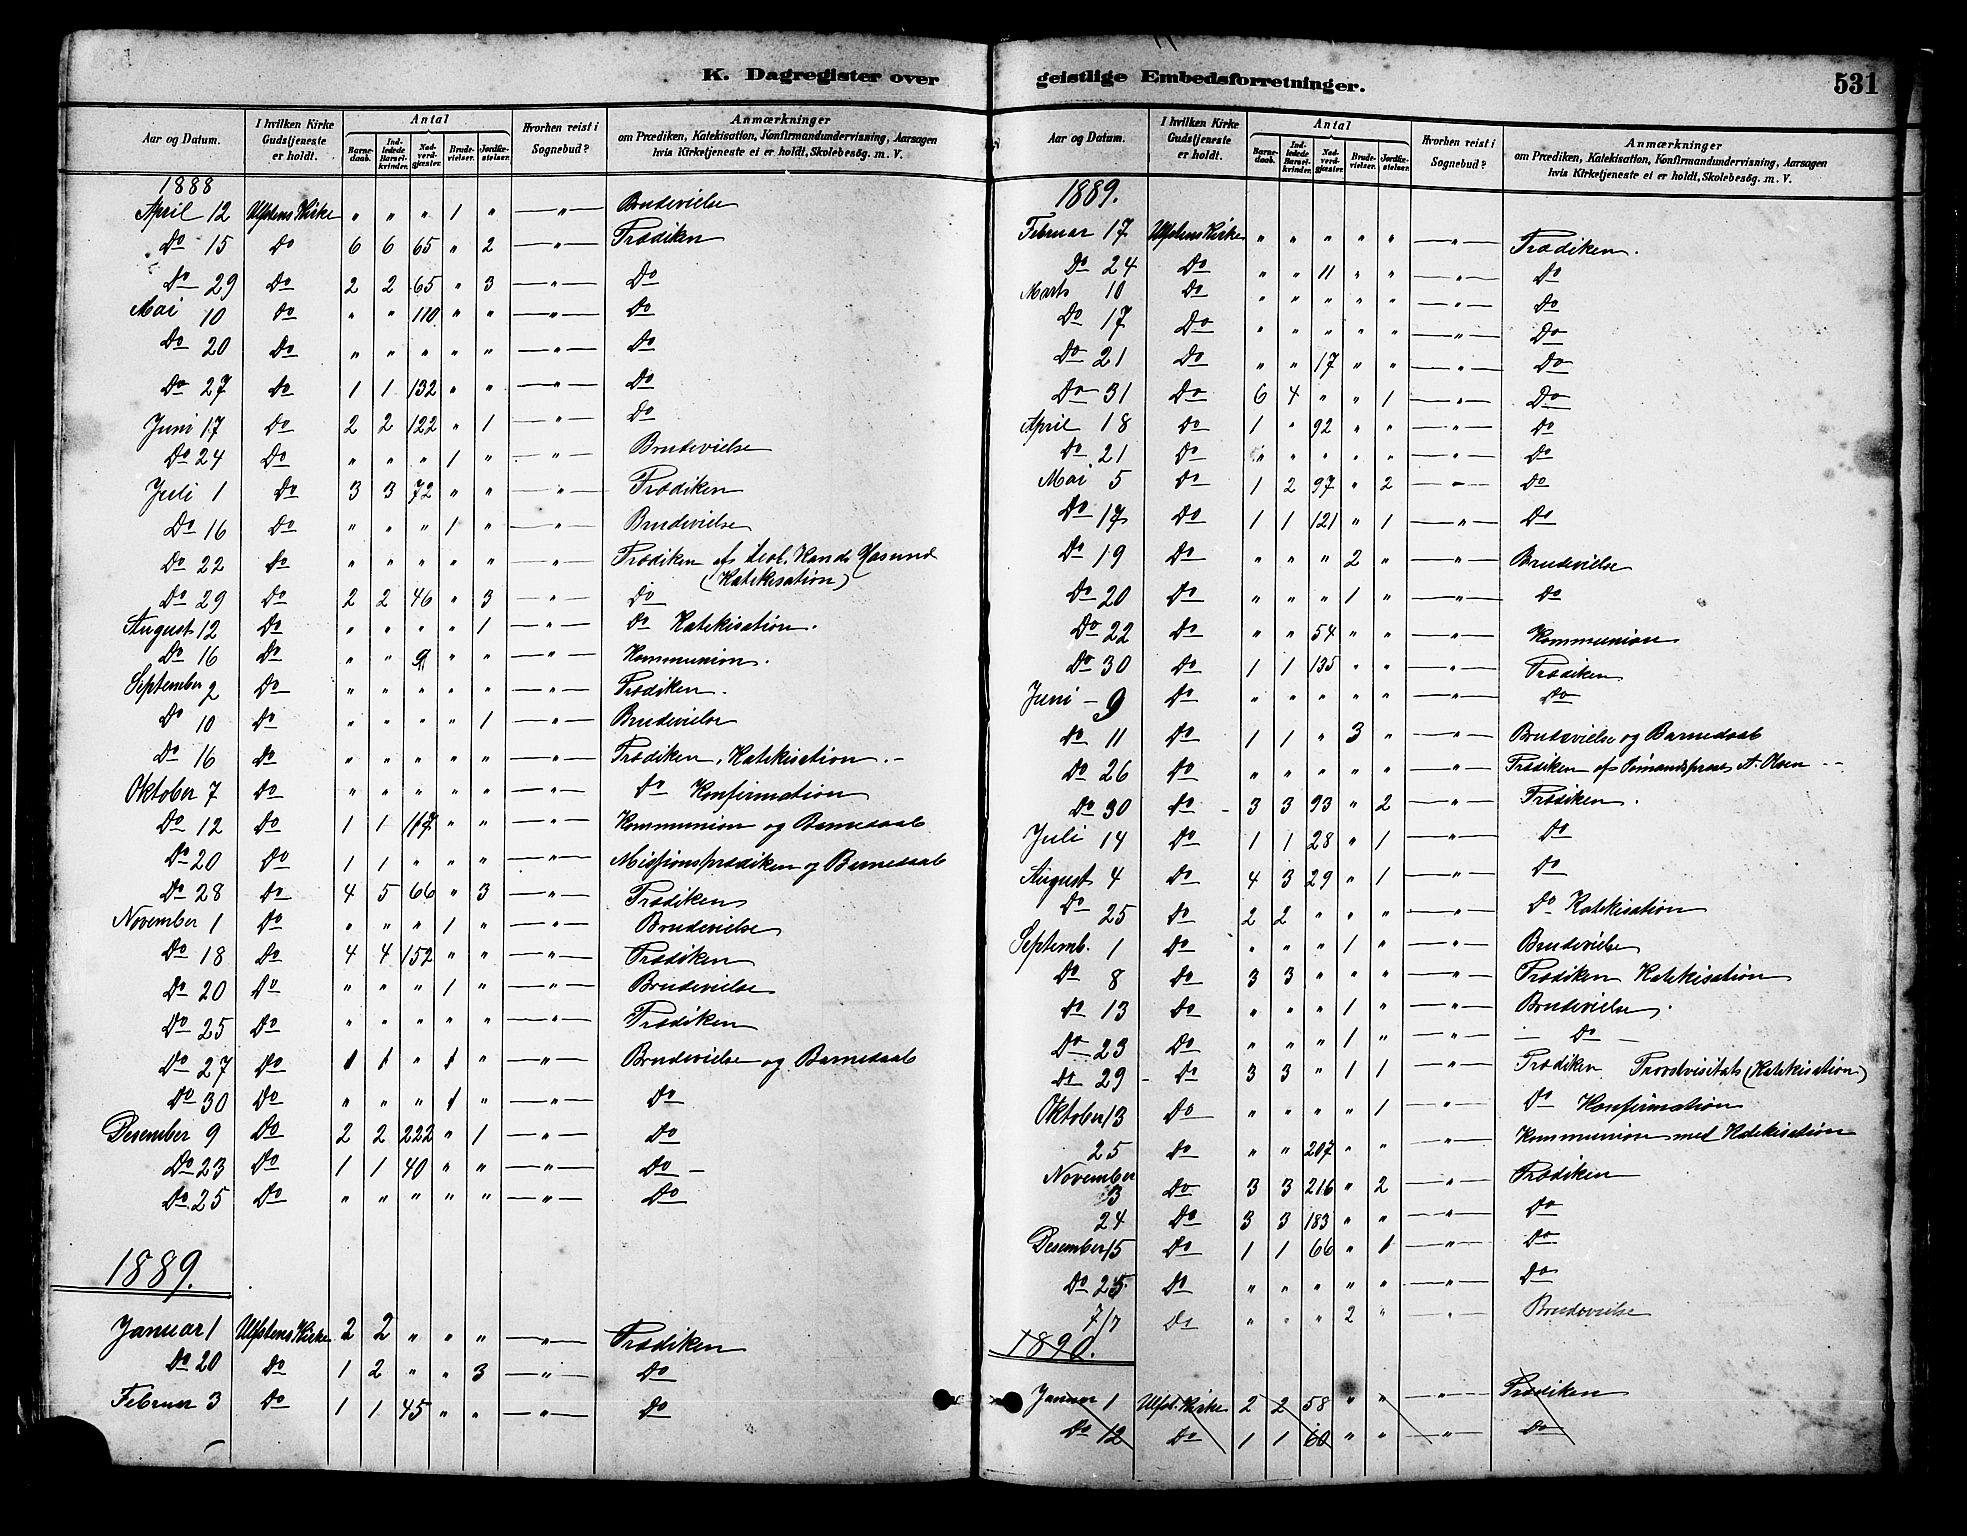 K. Dagregister over
Aar og Datum. | I hvilken Kirke Gudstjeneste er holdt. | Antal | Barnedaab. | Indledede Barselkvinder. | Nadverdgjæster. | Brudevielser. | Jordfæstelser. | Hvorhen reist i Sognebud? | Anmærkninger om Prædiken, Katekisation, Konfirmandundervisning, Aarsagen hvis Kirketjeneste ei er holdt, Skolebesøg. m. V.
1888
April 12 Ulfstens Kirke " " " 1 " —"— Brudevielse
Do 15 Do 6 6 65 " 2 —"— Prædiken
Do 29 Do 2 2 65 " 3 —"— Do
Mai 10 Do " " 110 " " —"— Do
Do 20 Do " " " " " —"— Do
Do 27 Do 1 1 132 " " —"— Do
Juni 17 Do 2 2 122 " 1 —"— Do
Do 24 Do " " " 1 " —"— Brudevielse
Juli 1 Do 3 3 72 " " —"— Prædiken
Do 16 Do " " " 1 " —"— Brudevielse
Do 22 Do " " " " " —"— Prædiken af teol. Kand. Hasund (Katekisation)
Do 29 Do 2 2 46 " 3 —"— Do
August 12 Do " " " " 1 —"— Do Katekisation.
Do 16 Do " " 9 " " —"— Kommunion.
September 2 Do " " " " " —"— Prædiken.
Do 10 Do " " " " 1 —"— Brudevielse
Do 16 Do " " " " " —"— Prædiken, Katekisation.–
Oktober 7 Do " " " " " —"— Do Konfirmation
Do 12 Do 1 1 117 " " —"— Kommunion og Barnedaab
Do 20 Do 1 1 " " " —"— Missionsprædiken og Barnedaab
Do 28 Do 4 5 66 " 3 —"— Prædiken
November 1 Do " " " 1 " —"— Brudevielse
Do 18 Do 4 4 152 " " —"— Prædiken
Do 20 Do " " " 1 " —"— Brudevielse
Do 25 Do " " " " " —"— Prædiken
Do 27 Do 1 1 " 1 " —"— Brudevielse og Barnedaab
Do 30 Do " " " 1 " —"— Do
Desember 9 Do 2 2 222 " 1 —"— Do
Do 23 Do 1 1 40 " " —"— Do –
Do 25 Do " " " " " —"— Do
1889.
Januar 1 Ulfstens Kirke 2 2 " " " —"— Prædiken
Do 20 Do 1 2 " " 3 —"— Do
Februar 3 Do 1 1 45 " " —"— Do
geistlige Embedsforretninger.
531
Aar og Datum. | I hvilken Kirke Gudstjeneste er holdt. | Antal | Barnedaab. | Indledede Barselkvinder. | Nadverdgjæster. | Brudevielser. | Jordfæstelser. | Hvorhen reist i Sognebud? | Anmærkninger om Prædiken, Katekisation, Konfirmandundervisning, Aarsagen hvis Kirketjeneste ei er holdt, Skolebesøg. m. V.
1889.
Februar 17 Ulfstens Kirke " " " " " —"— Prædiken.
Do 24 Do " " 11 " " —"— Do
Marts 10 Do " " " " " —"— Do
Do 17 Do " " " " " —"— Do
Do 21 Do " " 17 " " —"— Do
Do 31 Do 6 4 " " 1 —"— Do
April 18 Do 1 " 92 " " —"— Do
Do 21 Do " " " " " —"— Do
Mai 5 Do 1 2 97 " 2 —"— Do
Do 17 Do 1 1 121 " 1 —"— Do
Do 19 Do " " " 2 " —"— Brudevielse
Do 20 Do " " " 1 " —"— Do
Do 22 Do " " 54 " " —"— Kommunion
Do 30 Do 1 1 135 " " —"— Prædiken
Juni – 9 Do " " " " " —"— Do
Do 11 Do 1 1 " 3 " —"— Brudevielse og Barnedaab
Do 26 Do " " " " " —"— Prædiken af A. Olsen – –
Do 30 Do – 3 3 93 " 2 —"— Prædiken.
Juli 14 Do 1 1 28 " 1 —"— Do
August 4 Do 4 3 29 " 1 —"— Do
Do 25 Do 2 2 " " " —"— Do Katekisation
Septemb. 1 Do " " " 1 " —"— Brudevielse
Do 8 Do 3 3 " " " —"— Prædiken Katekisation
Do 13 Do " " " 1 " —"— Brudevielse.
Do 23 Do " " " 1 " —"— – Do –
Do 29 – Do 3 3 " 1 1 —"— Prædiken. (Katekisation)
Oktober 13 Do " " " " 1 —"— Do Konfirmation
25 Do " " 207 " " —"— Kommunion med Katekisation
November 3 Do 3 3 216 " 2 —"— Prædiken
24 Do 3 3 183 " " —"— Do
Desember 15 Do 1 1 66 " 1 —"— Do
Do 25 Do " " " " " —"— Do
7/7 Do " " " 2 " —"— Brudevielse
1890.
Januar 1 Ulfst. Kirke 2 2 58 " " —"— Prædiken
Do 12 Do 1 1 60 " " —"— Do